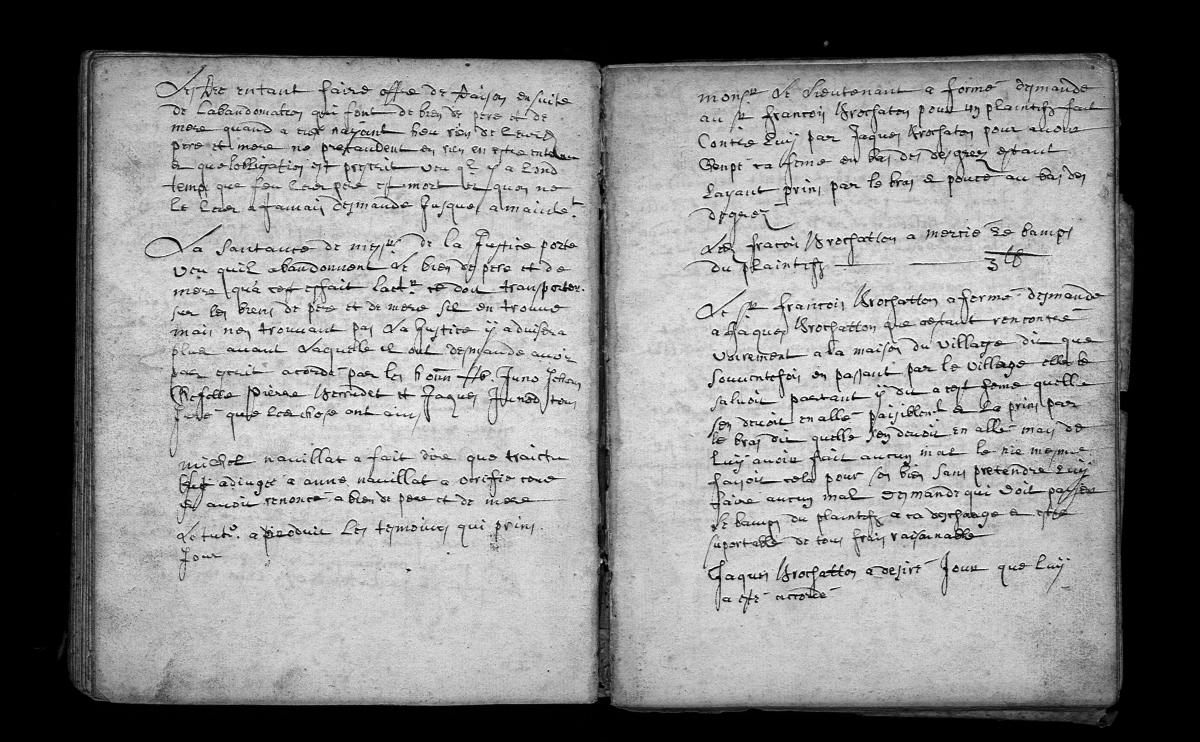 faire offre de Raison ensuite
de Labandonnation qui font de bien de père et de
mere quand a eux nayant heu rien de leurs
père et mere ne pretendent en rien en estre
& que lobligation est prescrit veu ql y a Long
temps que feu leur pere est mort et quon ne
Le Leur a Jamais demandé Jusques a mainte.t
La santance de mess.rs de la Justice porte
veu quil abandonnent Le bien de pere et de
mere qua cest effait lact.r se doit transporter
sur les biens de père et de mere sil en trouve
mais nen trouvant pas La Justice y advisera
plus avant Laquelle il ont demandé avoir
par escrit acordé par les Juno
Pierre et Jaques Junod tous
Juré que Les chose ont ainsi
Michel navillat a fait dire que
adiugé a anne navillat a verifie
avoir renoncé a bien de pere et de mere
a produit Les temoins qui prins
Jour
mons.r Le Lieutenant a formé demande
au s.r francois Brochaton pour un plaintifz fait
Contre Luy par Jaques Brochaton pour avoir
sa feme en bas des degrez estant
Layant prins par le bras & poucé au bas des
degrez
Led. fracois Brochatton a mercie Le bamps
du plaintifz 3 lb
Le s.r francois Brochatton a formé demande
a Jaques Brochatton que cestant rencontré
voirement a la maison du village dit que
souventefois en passant par le village elle le
saluoit partant y dit a cest feme quelle
sen devoit en allé paisiblent & La prins par
le bras dit quelle sen devoit en allé mais de
Luy avoir fait aucun mal le nie mesme
faisoit cela pour son bien sans pretendre Luy
faire aucun mal demande qui doit passer
Le bamps du plaintifz a sa descharge & estre
suportable de tous frais raisonnable
Jaques Brochatton a desiré Jour que Luy
a esté accordé